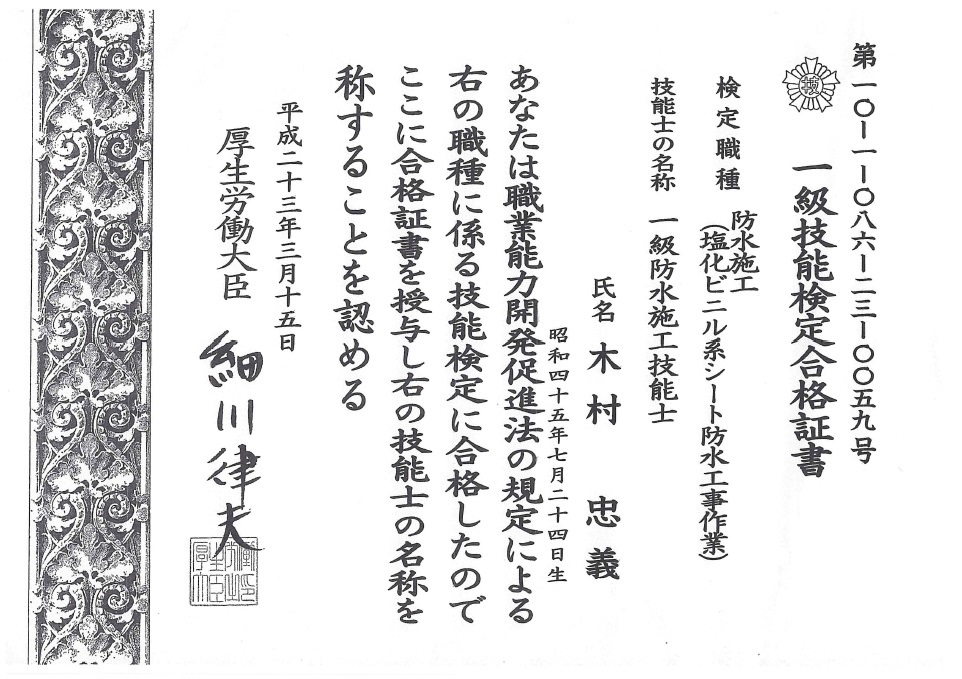 第一〇ー一ー〇八六ー二三ー〇〇五九号
一級技能検定合格証書
検定職種 防水施工
(塩化ビニル系シート防水工事作業)
技能士の名称 一級防水施工技能士
氏名 木村 忠義
昭和四十五年七月二十四日生
あなたは職業能力開発促進法の規定による
右の職種に係る技能検定に合格したので
ここに合格証書を授与し右の技能士の名称を
称することを認める
平成二十三年三月十五日
厚生労働大臣 細川律夫